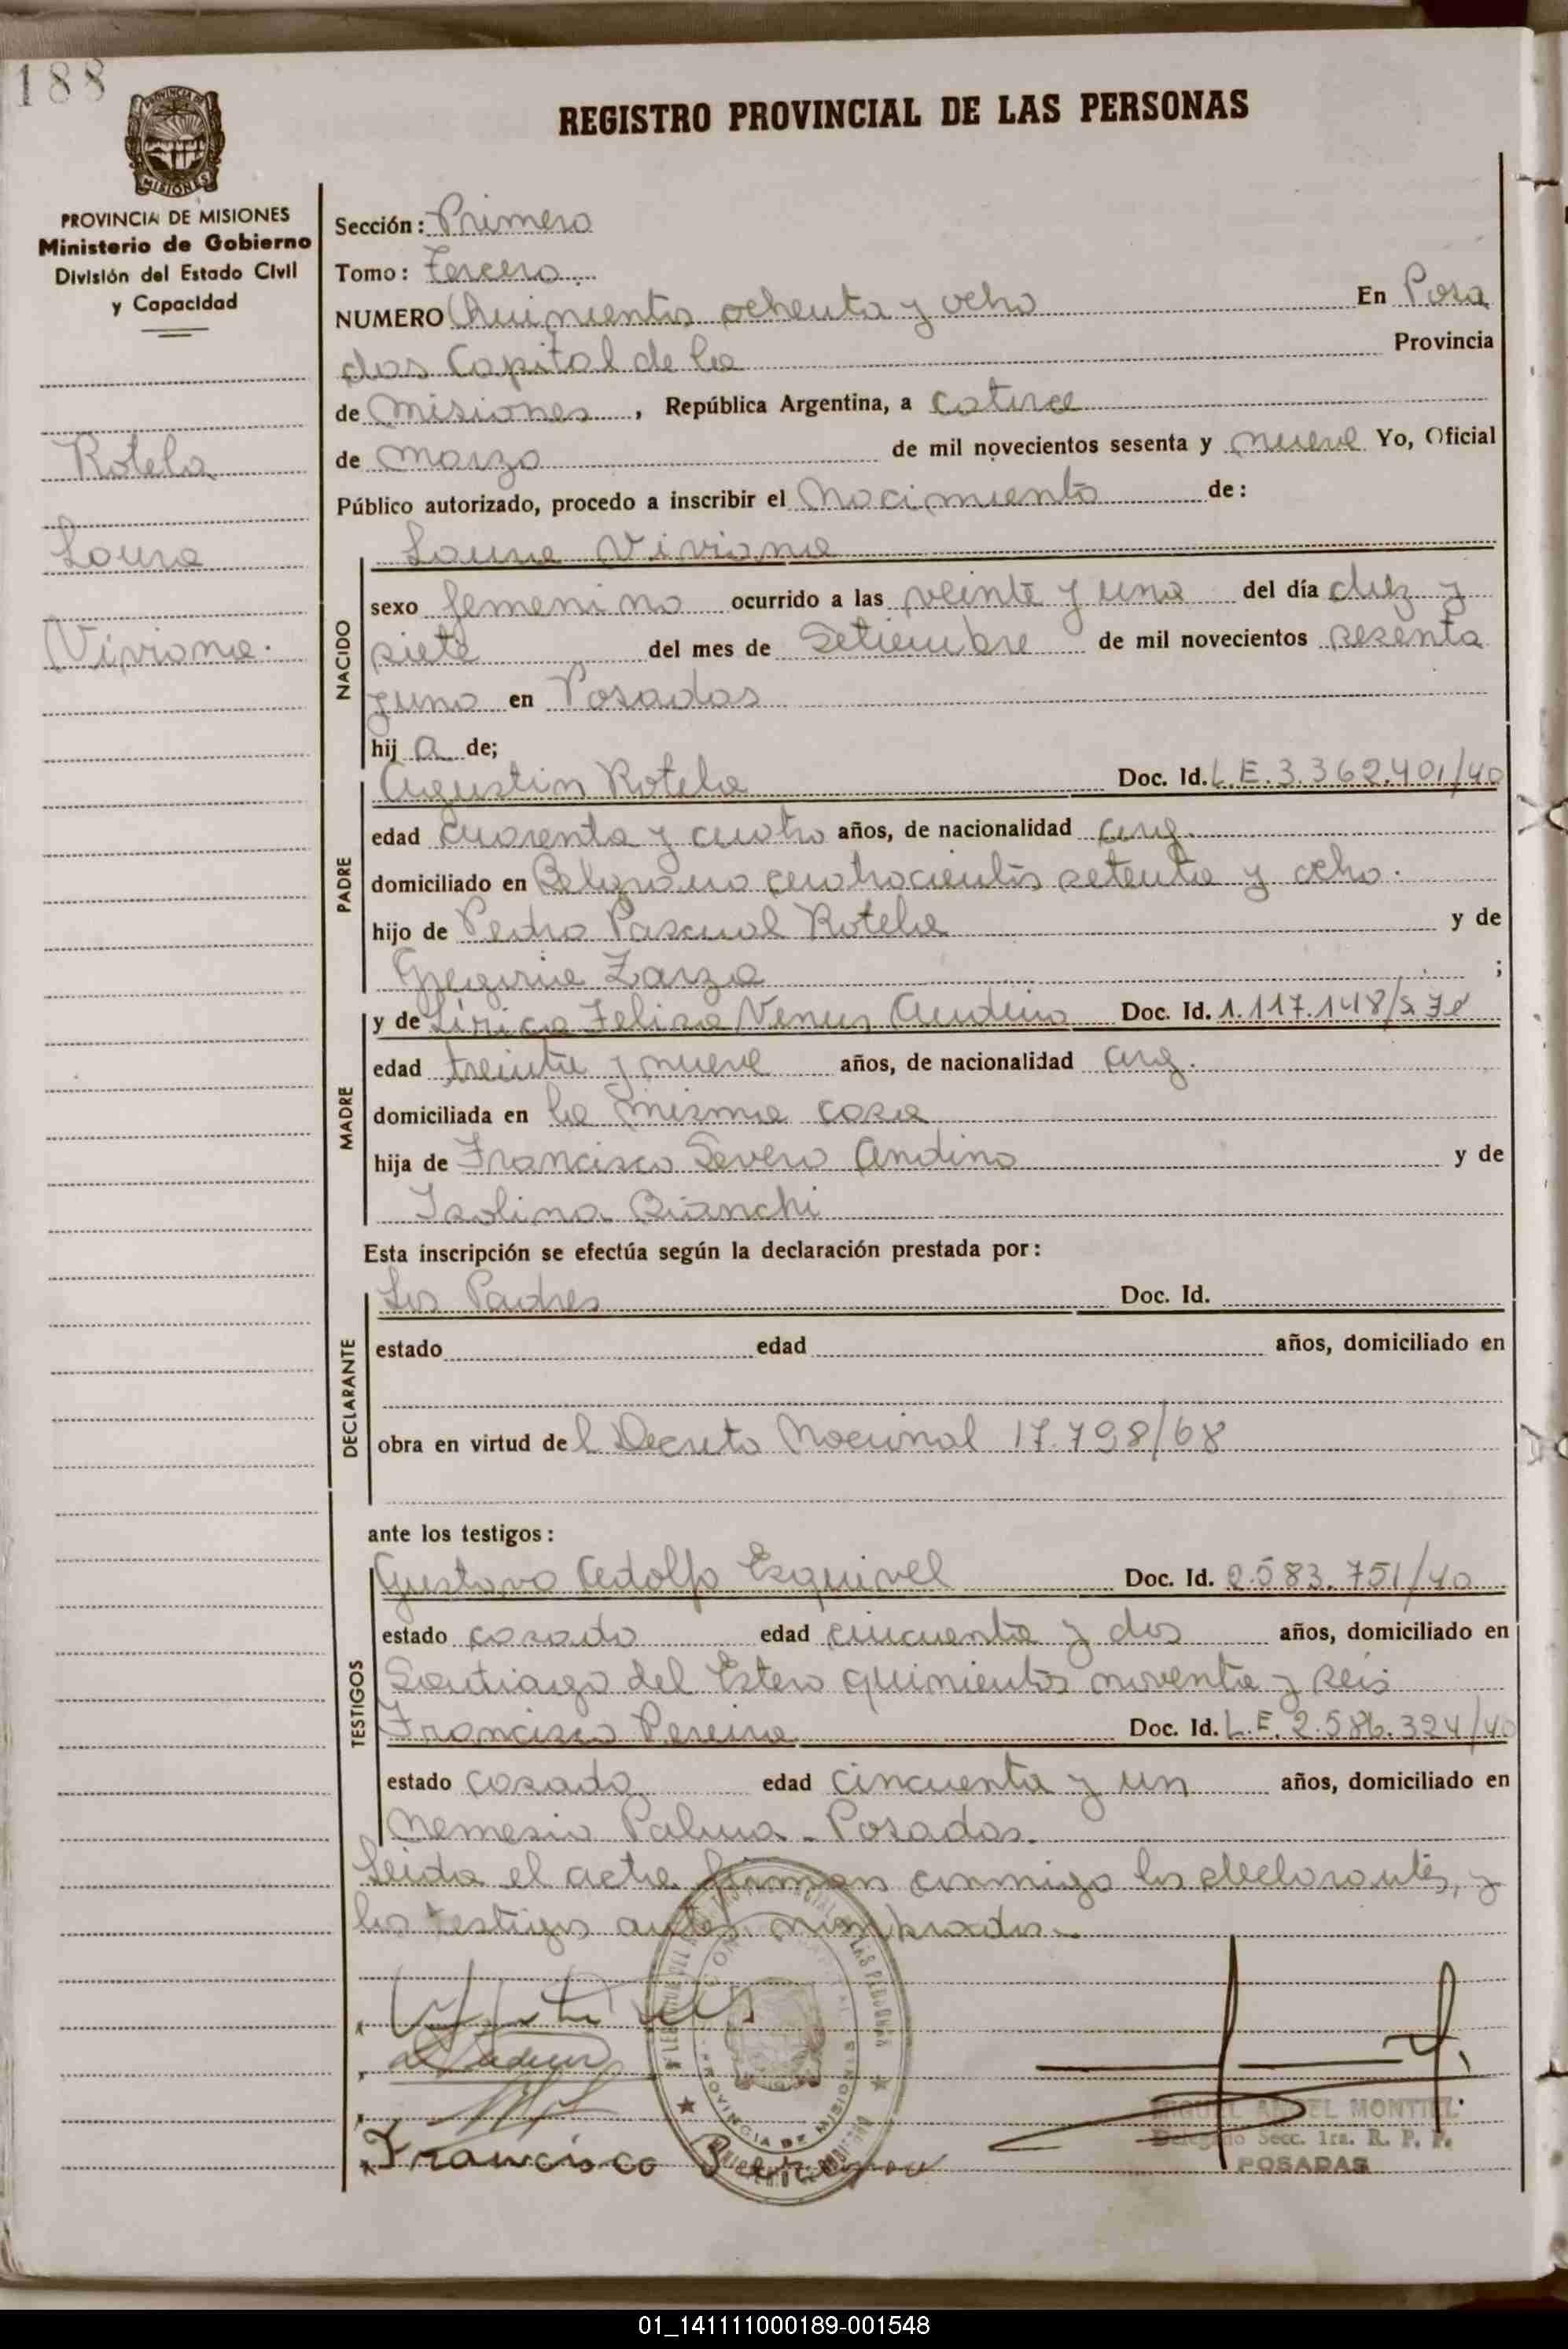 188
REGISTRO PROVINCIAL DE LAS PERSONAS
PROVINCIA DE MISIONES
MISIONES
PROVINCIA DE MISIONES
Ministerio de Gobierno
División del Estado Civil
y Capacidad
Rotela
Laura
Viviana.
Sección: Primera
Tomo: Tercero.
NUMERO Quinientos ochenta y ocho En Posa
das Capital de la Provincia
de Misiones, República Argentina, a catorce
de Marzo de mil novecientos sesenta y nueve Yo, Oficial
Público autorizado, procedo a inscribir el Nacimiento de:
NACIDO
Laura Viviana
sexo femenino ocurrido a las veinte y una del día diez y
siete del mes de Setiembre de mil novecientos sesenta
y uno en Posadas
hij a de;
PADRE
Agustin Rotela Doc. Id. L.E. 3.362.401/40
edad cuarenta y cuatro años, de nacionalidad arg.
domiciliado en Belgrano cuatrocientos setenta y ocho.
hijo de Pedro Pascual Rotela y de
Gregoria Zarza ;
MADRE
y de Lírica Felisa Venus Andino Doc. Id. 1.117.148
edad treinta y nueve años, de nacionalidad arg.
domiciliada en la misma casa
hija de Francisco Severo Andino y de
Isolina Bianchi
Esta inscripción se efectúa según la declaración prestada por:
DECLARANTE
Los Padres Doc. Id.
estado edad años, domiciliado en
obra en virtud de l Decreto Nacional 17.798/68
ante los testigos:
TESTIGOS
Gustavo Adolfo Esquivel Doc. Id. 2.583.751/40
estado casado edad cincuenta y dos años, domiciliado en
Santiago del Estero quinientos noventa y seis
Francisco Pereira Doc. Id. L.E. 2.586.324/40
estado casado edad cincuenta y un años, domiciliado en
Nemesio Palma - Posadas.
Leida el acta firman conmigo los declarantes, y
los testigos antes nombrados.-
PROVINCIA DE MISIONES
Francisco Pereyra
MIGUEL ANGEL MONTIEL
Delegado Secc. 1ra. R. P. P.
POSADAS
01_141111000189-001548